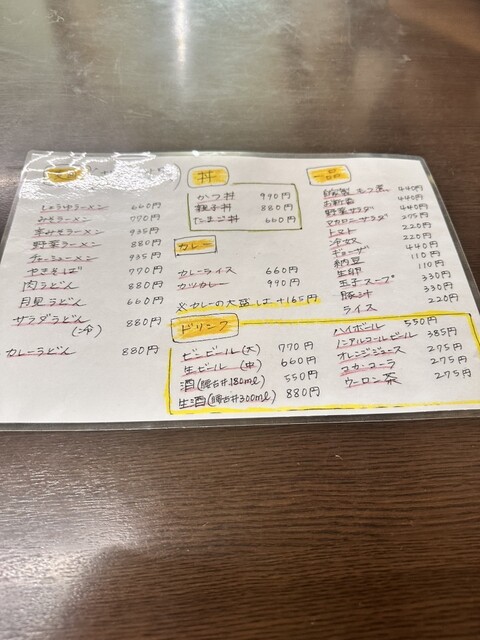 しょうゆラーメン 660円
みそラーメン 770円
辛みそラーメン 935円
野菜ラーメン 880円
チャーシューメン 935円
やきそば 770円
肉うどん 880円
月見うどん 660円
サラダうどん 880円
(冷)
カレーうどん 880円
丼
かつ丼 990円
親子丼 880円
たまご丼 660円
カレー
カレーライス 660円
カツカレー 990円
※カレーの大盛は+165円
一品
自家製 もつ煮 440円
お新香 440円
野菜サラダ 440円
マカロニーサラダ 275円
トマト 220円
冷奴 220円
ギョーザ 440円
納豆 110円
生卵 110円
玉子スープ 330円
豚汁 330円
ライス 220円
ドリンク
ビンビール(大) 770円
生ビール(中) 660円
酒(勝古井180ml) 550円
生酒(勝古井300ml) 880円
ハイボール 550円
ノンアルコールビール 385円
オレンジジュース 275円
コカ・コーラ 275円
ウーロン茶 275円